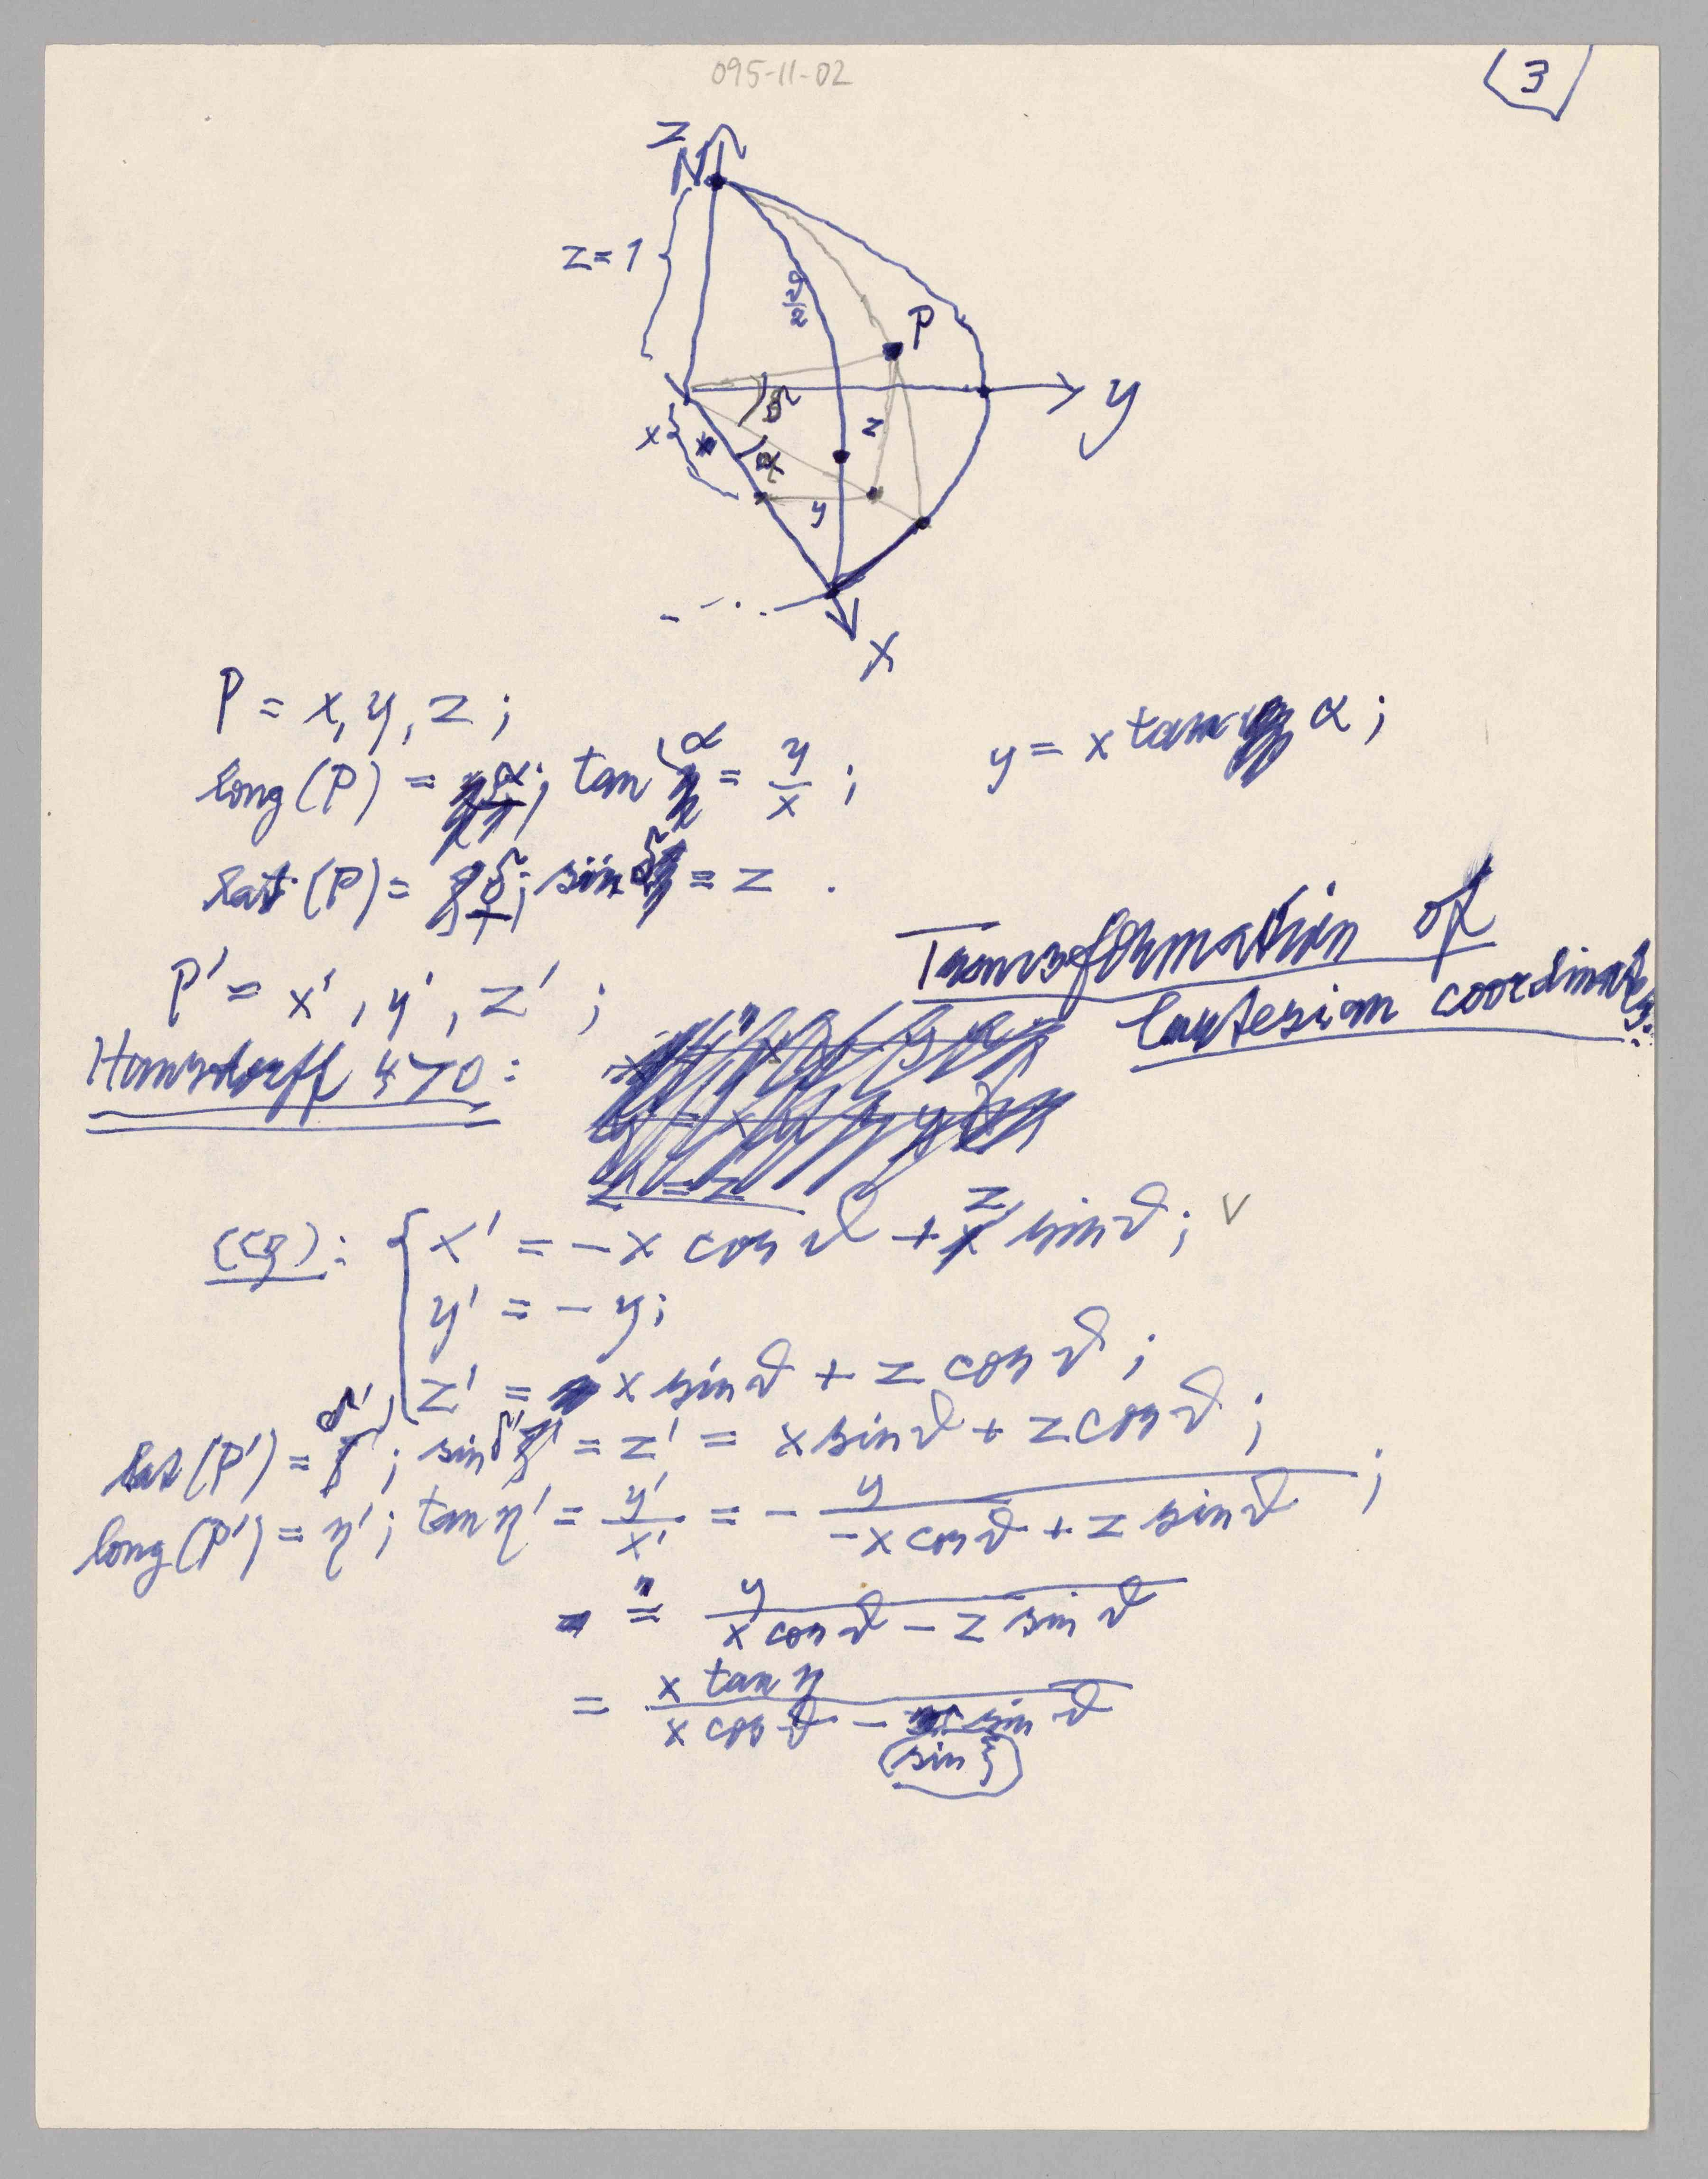 095-11-02
3
z
N
z = 1
ϑ/2
P
δ
y
x
α
z
y
x
P = x, y, z ;
long (P) = α ; tan α = y/x ; y = x tan α ;
lat (P) = δ ; sin δ = z .
Transformation of
Cartesian coordinates.
P' = x', y', z' ;
Hausdorff 470 :
(Cg) : { x' = - x cos ϑ + z sin ϑ ; V
y' = - y ;
z' = x sin ϑ + z cos ϑ ;
lat (P') = δ' ; sin δ' = z' = x sin ϑ + z cos ϑ ;
long (P') = η' ; tan η' = y'/x' = - y/(-x cos ϑ + z sin ϑ) ;
= y/(x cos ϑ - z sin ϑ)
= x tan η/(x cos ϑ - sin ϑ)
(sin ξ)